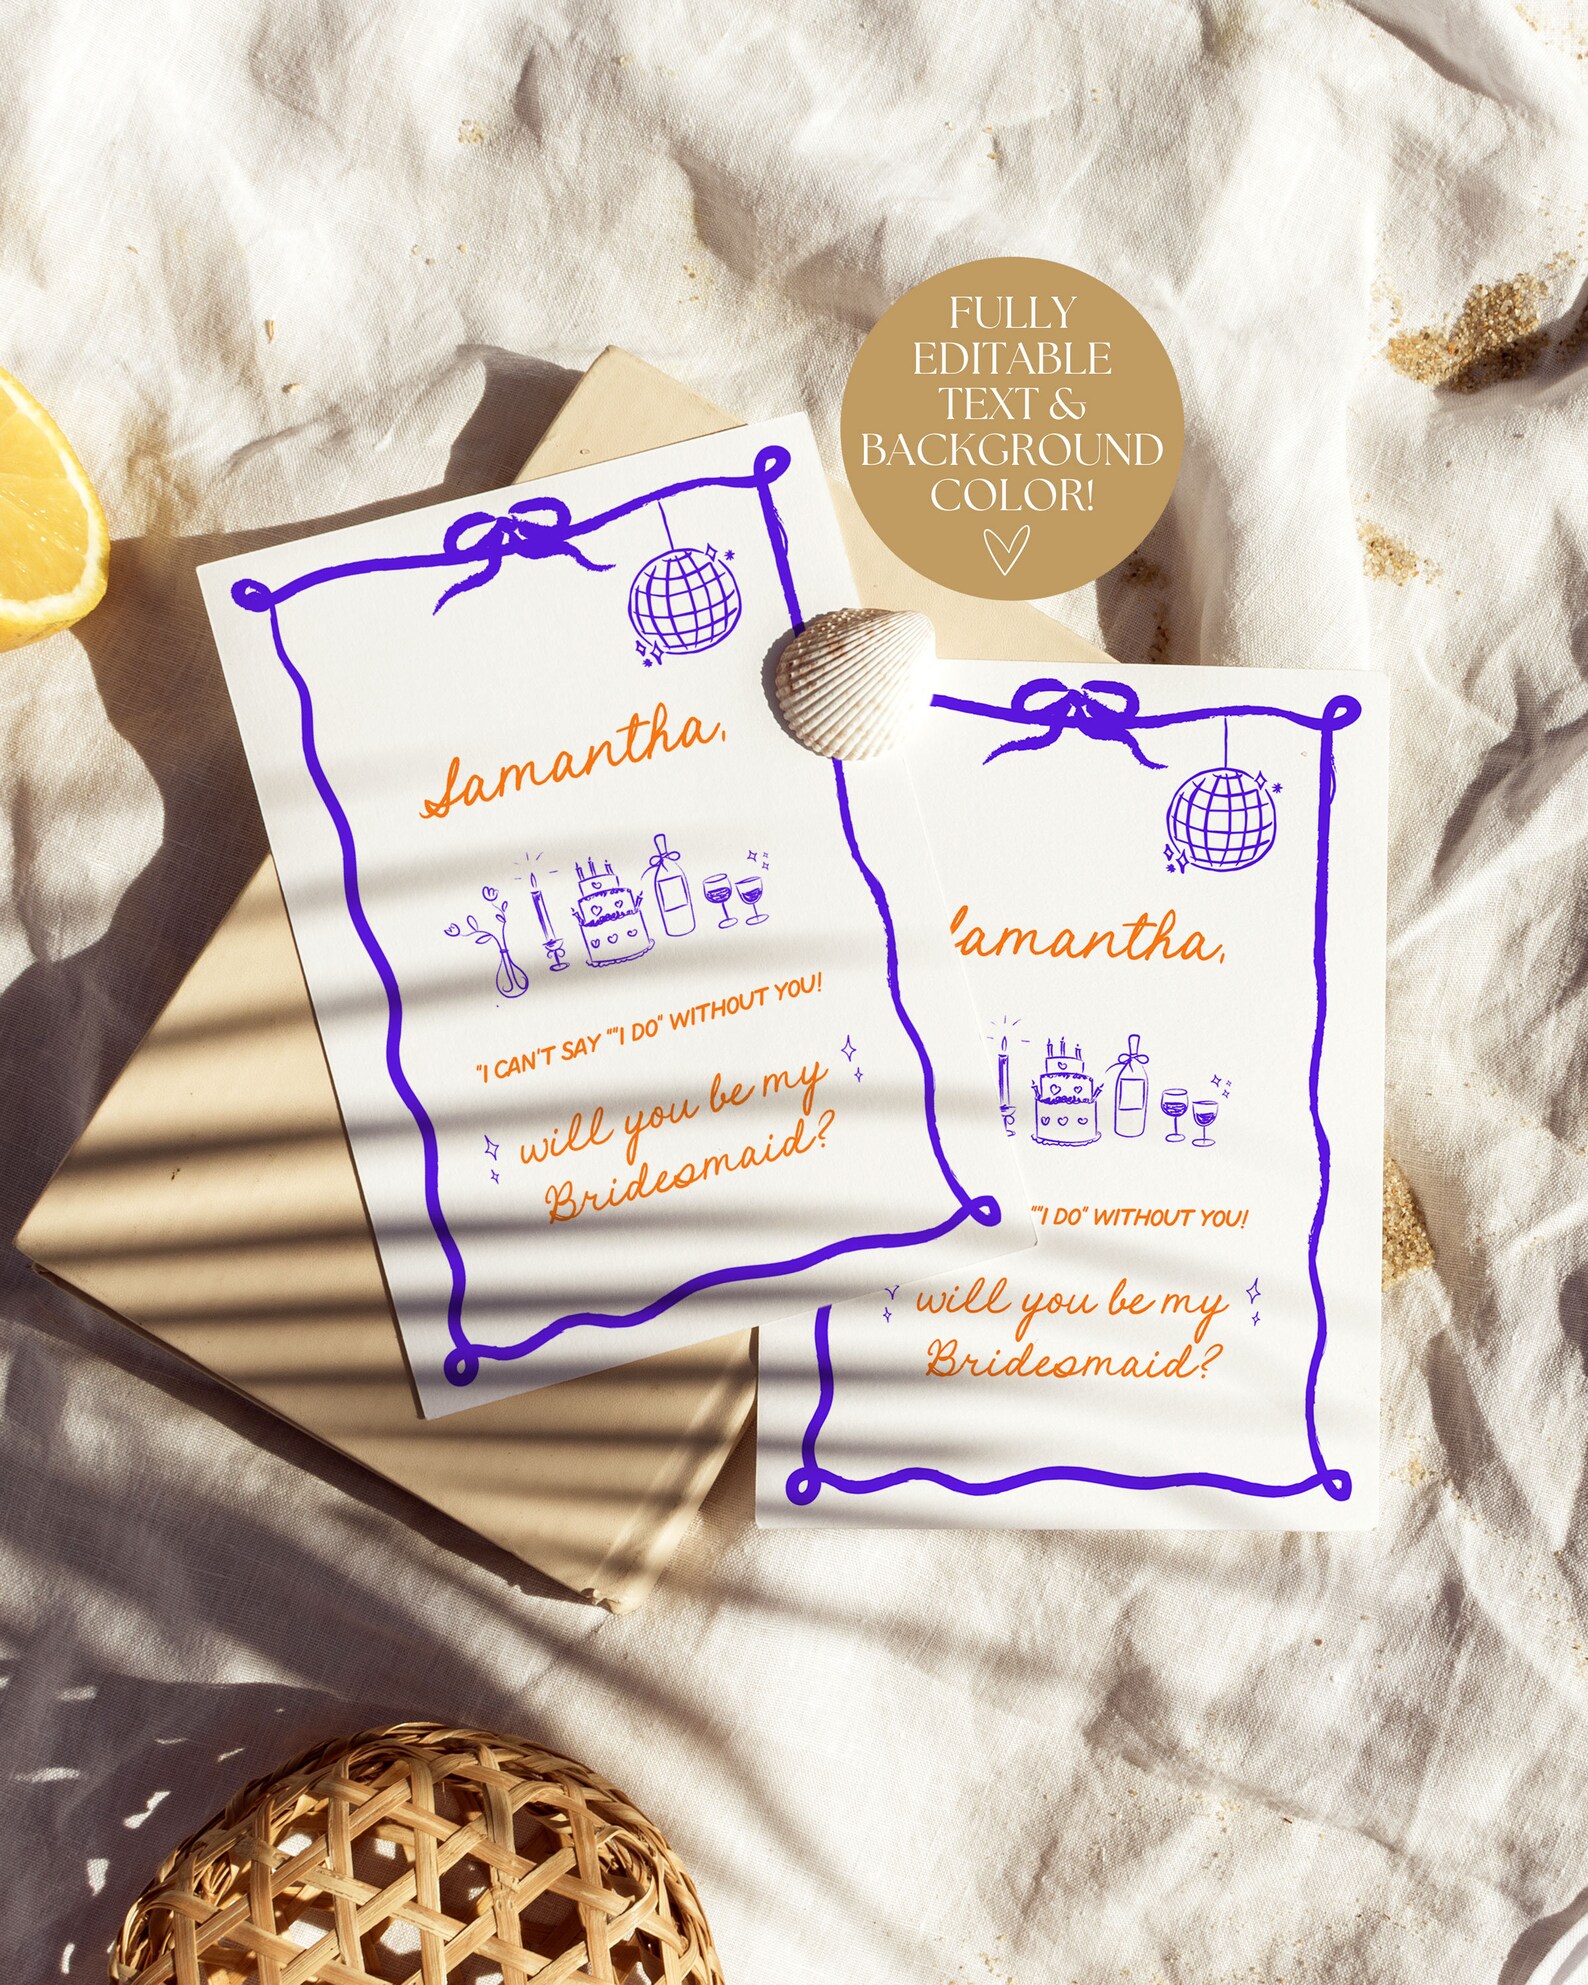 FULLY
EDITABLE
TEXT &
BACKGROUND
COLOR!
Samantha,
"I CAN'T SAY ""I DO" WITHOUT YOU!
will you be my
Bridesmaid?
amantha,
""I DO" WITHOUT YOU!
will you be my
Bridesmaid?